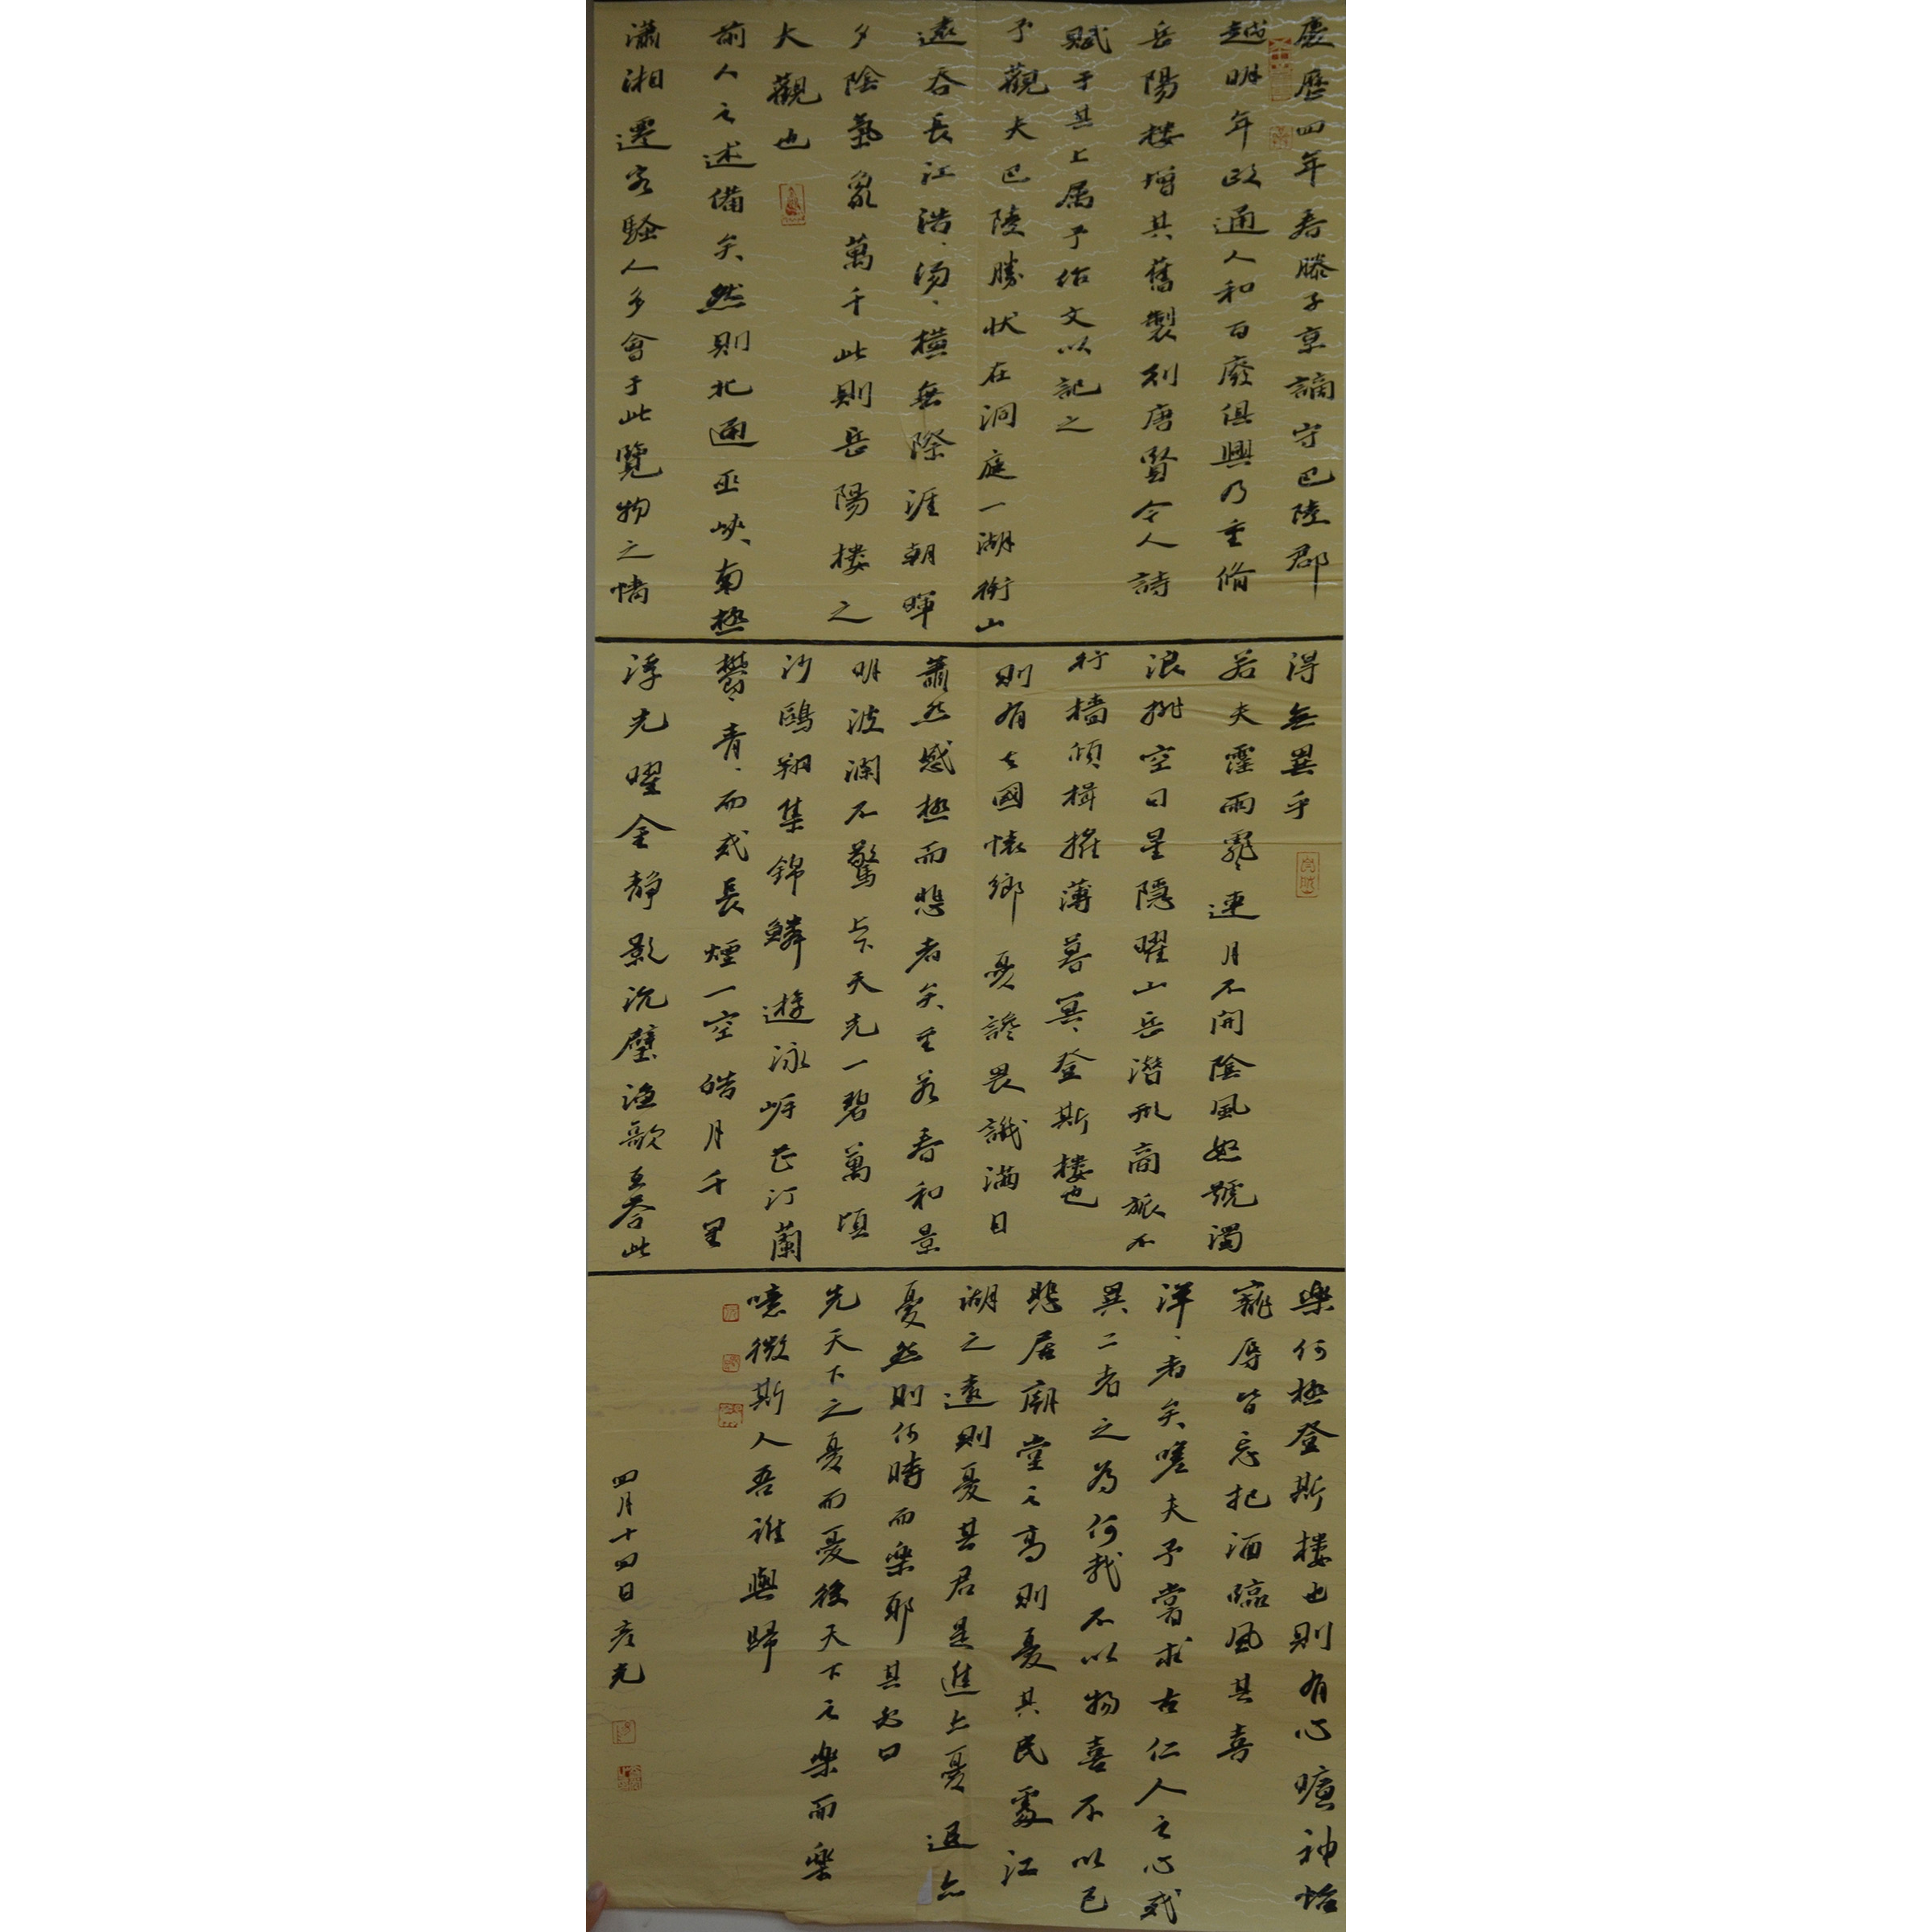 慶歷四年春滕子京謫守巴陵郡
越明年政通人和百廢俱興乃重脩
岳陽樓增其舊製刻唐賢今人詩
賦于其上属予作文以記之
予觀夫巴陵勝状在洞庭一湖銜山
遠吞長江浩、湯、橫無際涯朝暉
夕陰氣象萬千此則岳陽樓之
大觀也
前人之述備矣然則北通巫峽南極
瀟湘遷客騷人多會于此覽物之情
得無異乎
若夫霪雨霏、連月不開陰風怒號濁
浪排空日星隱曜山岳潛形商旅不
行檣傾楫摧薄暮冥、登斯樓也
則有去國懷鄉憂讒畏譏滿目
蕭然感極而悲者矣至若春和景
明波瀾不驚上下天光一碧萬頃
沙鷗翔集錦鱗遊泳岸芷汀蘭
鬱、青、而或長煙一空皓月千里
浮光曜金静影沉璧漁歌互答此
樂何極登斯樓也則有心曠神怡
寵辱皆忘把酒臨風其喜
洋、者矣嗟夫予嘗求古仁人之心或
異二者之為何哉不以物喜不以己
悲居廟堂之高則憂其民處江
湖之遠則憂其君是進上憂退亦
憂然則何時而樂耶其必曰
先天下之憂而憂後天下之樂而樂
噫微斯人吾誰與歸
四月十四日彦光